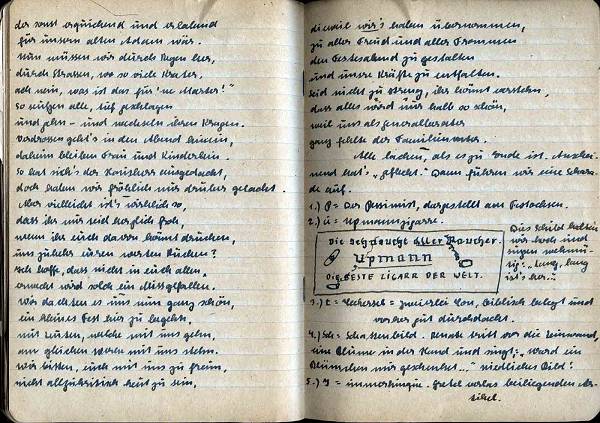 der sonst erquickend und erlabend
für unsern alten Adam wär.
Nun müssen wir durch Regen her,
durch Strassen, wo so viele Krater.
ach nein, was ist das für 'ne Marter!"
So seufzen alle, tief
und gehn - und wechseln ihren Kragen.
Verdrossen geht's in den Abend hinein,
daheim bleiben Frau und Kinderlein.
So hat sich's der ausgedacht,
doch haben wir fröhlich nur drüber gelacht.
Aber vielleicht ist's wirklich so,
dass ihr nur seid herzlich froh,
wenn ihr euch davon könnt drücken,
uns zu kehren euren werten Rücken?
Ich hoffe, dass nicht in euch allen
erwacht wird solch ein Missgefallen.
Wir dachten es uns nun ganz schön,
ein kleines Fest hier zu begehn
mit Leuten, welche mit uns gehn,
am gleichen Werke mit uns stehn.
Wir bitten, euch mit uns zu freun,
nicht allzukritisch heut zu sein,
dieweil wir's haben übernommen,
zu aller Freud und aller Frommen
den Festabend zu gestalten
und unsre Kräfte zu entfalten.
Seid nicht zu streng, ihr könnt verstehn,
dass alles wird nur halb so schön,
weil uns als
ganz fehlte der Familienvater.
Alle lachen, als es zu Ende ist. Anschei-
nend hat's „gefleckt". Dann führen wir eine Schara-
de auf.
1.) P = Der Pessimist, dargestellt am
2.) U = Upmannzigarre.
Die gebrauche aller Raucher.
Upmann
Die BESTE ZIGARR DER WELT.
Dies Schild halten
wir hoch und
singen wehmü-
tig: „Lang, lang
ist's her."
3.) t = = zweierlei Ton, biblisch belegt und
vorher gut durchdacht.
4.) Sch = Schattenbild. Renate tritt vor die Leinwand,
eine Blume in der Hand und singt: „Ward ein
Blümchen mir geschenket..." Niedliches Bild!
5.) I = . Gretel verlas beiliegenden Ar-
tikel.